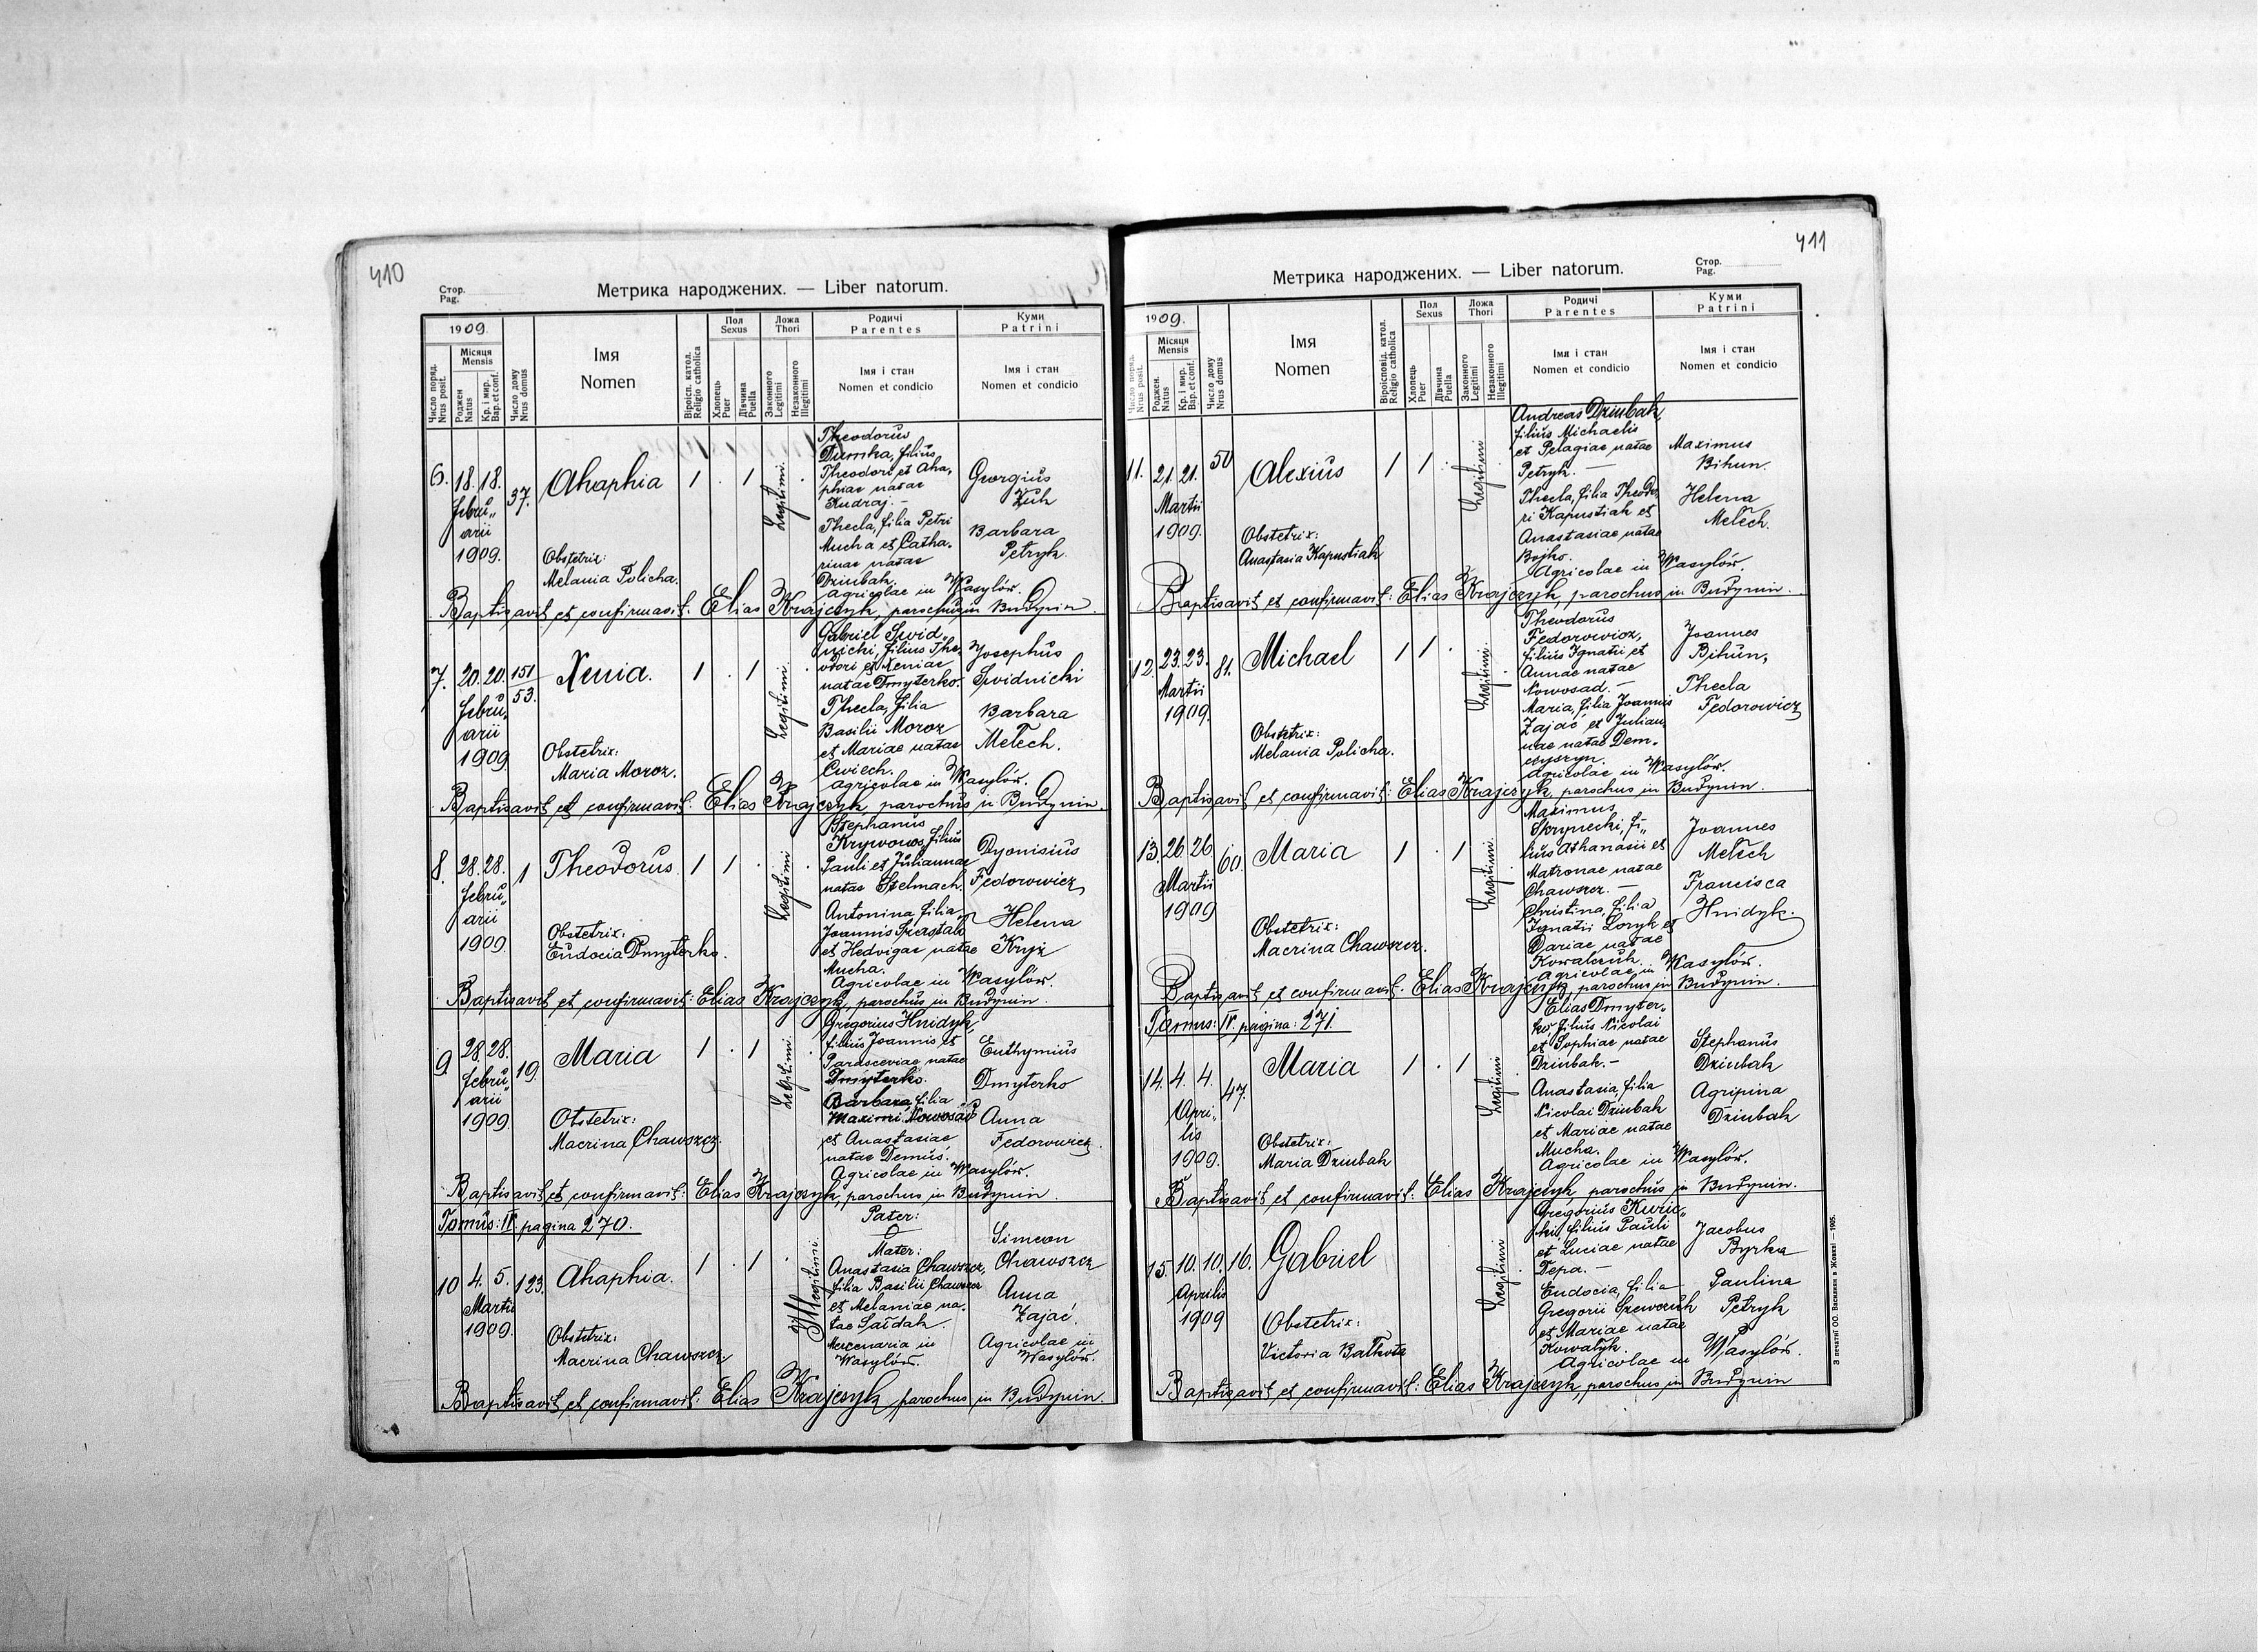 410
Стор.
Pag.
Метрика народжених. — Liber natorum.
1909.
Число поряд.
Nrus posit.
Місяця
Mensis
Роджен
Natus
Кр. і мир.
Bap. et conf.
Число дому
Nrus domus
Імя
Nomen
Віроісп. катол.
Religio catholica
Пол
Sexus
Хлопець
Puer
Дівчина
Puella
Ложа
Thori
Законного
Legitimi
Незаконного
Illegitimi
Родичі
Parentes
Імя і стан
Nomen et condicio
Куми
Patrini
Імя і стан
Nomen et condicio
6. 18. 18. 37. Ahaphia 1 . 1 Legitimi .
Febru„
arii
1909.
Obstetrix:
Melania Policha.
Theodorus
Dumka, filius
Theodori et Aha„
phiae natae
Kudraj. —
Thecla, filia Petri
Mucha et Catha„
rinae natae
Dziubak.
Agricolae in Wasylów.
Georgius
Żuk
Barbara
Petryk.
Baptisavit et confirmavit: Elias Krajczyk, parochus in Budynin.
7. 20. 20. 151/53. Xenia. 1 . 1 Legitimi .
Febru„
arii
1909.
Obstetrix:
Maria Moroz.
Gabriel Swid„
nicki, filius The„
odori et Xeniae
natae Dmyterko.
Thecla, filia
Basilii Moroz
et Mariae natae
Cwiech.
Agricolae in Wasylów.
Josephus
Swidnicki
Barbara
Mełech.
Baptisavit et confirmavit: Elias Krajczyk, parochus in Budynin.
8. 28. 28. 1 Theodorus 1 1 . Legitimi
Febru„
arii
1909.
Obstetrix:
Eudocia Dmyterko.
Stephanus
Krywonos, filius
Pauli et Juliannae
natae Stelmach.
Antonina, filia
Joannis
et Hedvigae natae
Mucha.
Agricolae in Wasylów.
Dyonisius
Fedorowicz
Helena
Kryż
Baptisavit et confirmavit: Elias Krajczyk, parochus in Budynin.
9 28. 28. 19. Maria 1 . 1 Legitimi .
Febru„
arii
1909.
Obstetrix:
Macrina Chawszcz.
Gregorius Hnidyk,
filius Joannis et
Parasceviae natae
Dmyterko.
Barbara, filia
Maximi Nowosad
et Anastasiae
natae Demuś.
Agricolae in Wasylów.
Euthymius
Dmyterko
Anna
Fedorowicz.
Baptisavit et confirmavit: Elias Krajczyk, parochus in Budynin.
Tomus: IV. pagina 270.
10 4. 5. 123. Ahaphia. 1 . 1 . Illegitimi.
Martii
1909.
Obstetrix:
Macrina Chawszcz.
Pater:
O
Mater:
Anastasia Chawszcz,
filia Basilii Chawszcz
et Melaniae na„
tae Saїdak.
Mercenaria in
Wasylów.
Simeon
Chawszcz
Anna
Zając.
Agricolae in
Wasylów.
Baptisavit et confirmavit: Elias Krajczyk, parochus in Budynin.
411
Стор.
Pag.
Метрика народжених. — Liber natorum.
1909.
Число поряд.
Nrus posit.
Місяця
Mensis
Роджен.
Natus
Кр. і мир.
Bap. et conf.
Число дому
Nrus domus
Імя
Nomen
Віроісповід. катол.
Religio catholica
Пол
Sexus
Хлопець
Puer
Дівчина
Puella
Ложа
Thori
Законного
Legitimi
Незаконного
Illegitimi
Родичі
Parentes
Імя і стан
Nomen et condicio
Куми
Patrini
Імя і стан
Nomen et condicio
11. 21. 21. 50 Alexius 1 1 . Legitimi
Martii
1909.
Obstetrix:
Anastasia Kapustiak
Andreas Dziubak,
filius Michaelis
et Pelagiae natae
Petryk. —
Thecla, filia Theodo„
ri Kapustiak et
Anastasiae natae
Bojko.
Agricolae in Wasylów.
Maximus
Bihun.
Helena
Mełech.
Baptisavit et confirmavit: Elias Krajczyk, parochus in Budynin.
12. 23. 23. 81. Michael 1 1 . Legitimi.
Martii
1909.
Obstetrix:
Melania Policha.
Theodorus
Fedorowicz,
filius Ignatii et
Annae natae
Nowosad. —
Maria, filia Joannis
Zając et Julian„
nae natae Dem„
czyszyn.
Agricolae in Wasylów.
Joannes
Bihun,
Thecla
Fedorowicz
Baptisavit et confirmavit: Elias Krajczyk, parochus in Budynin.
13. 26 26 60 Maria 1 . 1 Legitimi.
Martii
1909
Obstetrix:
Macrina Chawszcz.
Maximus
Skrypecki, fi„
lius Athanasii et
Matronae natae
Chawszcz. —
Christina, filia
Ignatii Łozyk et
Dariae natae
Kowalczuk.
Agricolae in Wasylów.
Joannes
Mełech
Francisca
Hnidyk.
Baptisavit et confirmavit: Elias Krajczyk, parochus in Budynin.
Tomus: IV. pagina: 271.
14. 4. 4. 47. Maria 1 . 1 Legitimi
Apri„
lis
1909.
Obstetrix:
Maria Dziubak
Elias Dmyter„
ko, filius Nicolai
et Sophiae natae
Dziubak. —
Anastasia, filia
Nicolai Dziubak
et Mariae natae
Mucha.
Agricolae in Wasylów.
Stephanus
Dziubak
Agripina
Dziubak
Baptisavit et confirmavit: Elias Krajczyk, parochus in Budynin.
15. 10. 10. 16. Gabriel Legitimi
Aprilis
1909
Obstetrix:
Victoria Bałkota
Gregorius Kuric„
ki, filius Pauli
et Luciae natae
Depa. —
Eudocia, filia
Gregorii Szewczuk
et Mariae natae
Kowalyk.
Agricolae in Wasylów.
Jacobus
Byrka
Paulina
Petryk
Baptisavit et confirmavit: Elias Krajczyk, parochus in Budynin
З печатні ОО. Василиян в Жовкві — 1905.